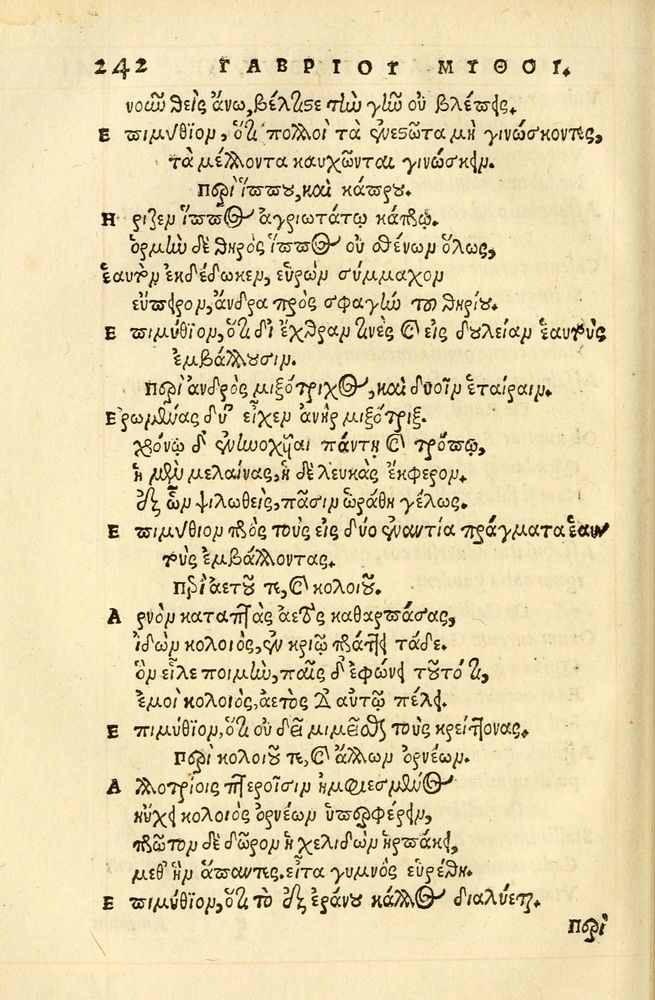 242 ΓΑΒΡΙΟΥ ΜΥΘΟΙ.
νοῶν θεὶς ἄνω, βέλτιστε τὴν γῆν οὐ βλέπεις.
Ἐπιμύθιον, ὅτι πολλοὶ τὰ ἐνεστῶτα μὴ γινώσκοντες,
τὰ μέλλοντα καυχῶνται γινώσκειν.
Περὶ ἵππου, καὶ κάπρου.
Ἤριζεν ἵππος ἀγριωτάτῳ κάπρῳ.
ὁρμὴν δὲ θηρὸς ἵππος οὐ σθένων ὅλως,
ἑαυτὸν ἐκδέδωκεν, εὑρὼν σύμμαχον
εὔπειρον, ἄνδρα πρὸς σφαγὴν τοῦ θηρίου.
Ἐπιμύθιον, ὅτι δι' ἔχθραν τινὲς καὶ εἰς δουλείαν ἑαυτοὺς
ἐμβάλλουσιν.
Περὶ ἀνδρὸς μιξότριχος, καὶ δυοῖν ἑταίραιν.
Ἐρωμένας δύ' εἶχεν ἀνὴρ μιξόθριξ.
χρόνῳ δ' πάντη καὶ τρόπῳ,
ἡ μὲν μελαίνας, ἡ δὲ λευκὰς ἔκφερον.
ἐξ ὧν ψιλωθεὶς, πᾶσιν ὡράθη γέλως.
Ἐπιμύθιον πρὸς τοὺς εἰς δύο ἐναντία πράγματα ἑαυ
τοὺς ἐμβάλλοντας.
Περὶ ἀετοῦ τε, καὶ κολοιοῦ.
Ἀρνὸν καταπτὰς ἀετὸς καθαρπάσας,
ἰδὼν κολοιὸς, ἐν κριῷ πράττει τάδε.
ὃν εἷλε ποιμὴν, παῖς δ' ἐφώνει τοῦτό τι,
ἐμοὶ κολοιὸς, ἀετὸς δ' αὐτῷ πέλει.
Ἐπιμύθιον, ὅτι οὐ δεῖ μιμεῖσθαι τοὺς κρείττονας.
Περὶ κολοιοῦ τε, καὶ ἄλλων ὀρνέων.
Ἀλλοτρίοις πτεροῖσιν ἠμφιεσμένος
ηὔχει κολοιὸς ὀρνέων ὑπερφέρειν,
πρῶτον δὲ δῶρον ἡ χελιδὼν ἡρπάκει,
μεθ' ἣν ἅπαντες. εἶτα γυμνὸς εὑρέθη.
Ἐπιμύθιον, ὅτι τὸ ἐξ ἐράνου κάλλος διαλύεται.
Περὶ